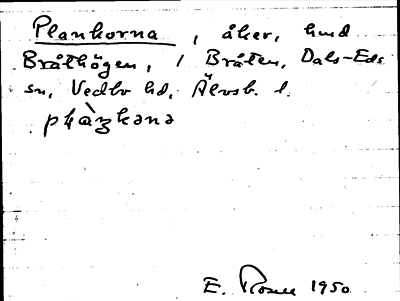 Plankorna, åker, hmd
Bråthögen, / Bråten, Dals-Eds
sn, Vedbo hd, Älvsb. l.
E. Rosell 1950